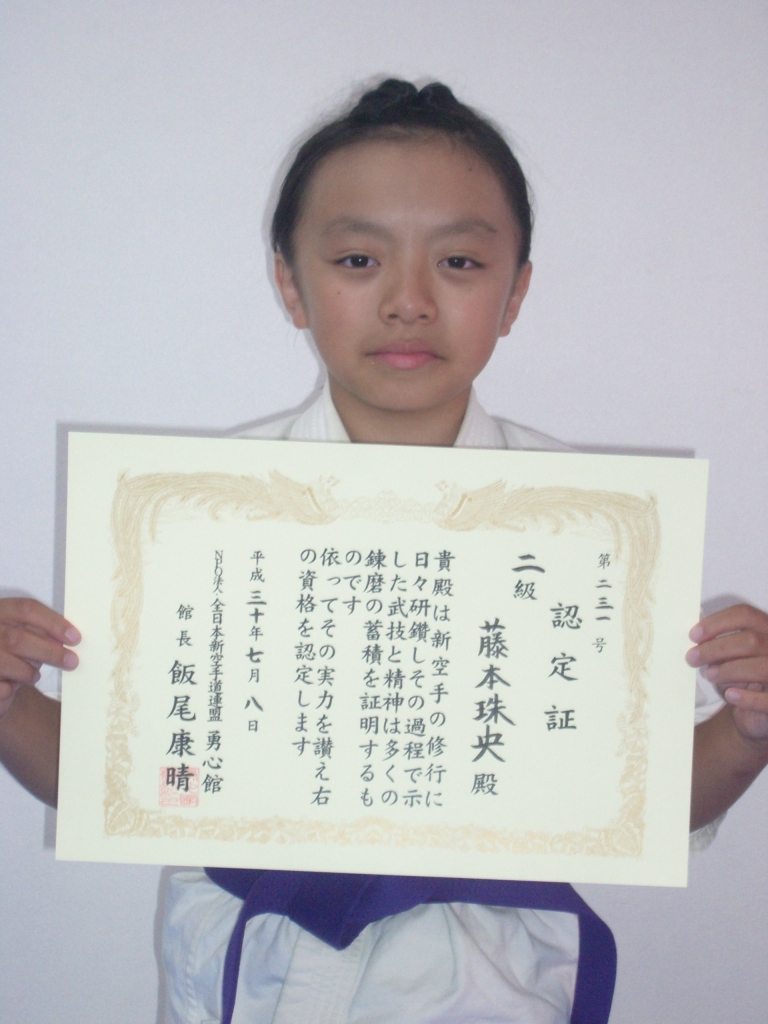 第二三一号
認定証
二級
藤本珠央殿
貴殿は新空手の修行に
日々研鑽しその過程で示
した武技と精神は多くの
錬磨の蓄積を証明するも
のです
依ってその実力を讃え右
の資格を認定します
平成三十年七月八日
NPO法人全日本新空手道連盟 勇心館
館長 飯尾康晴